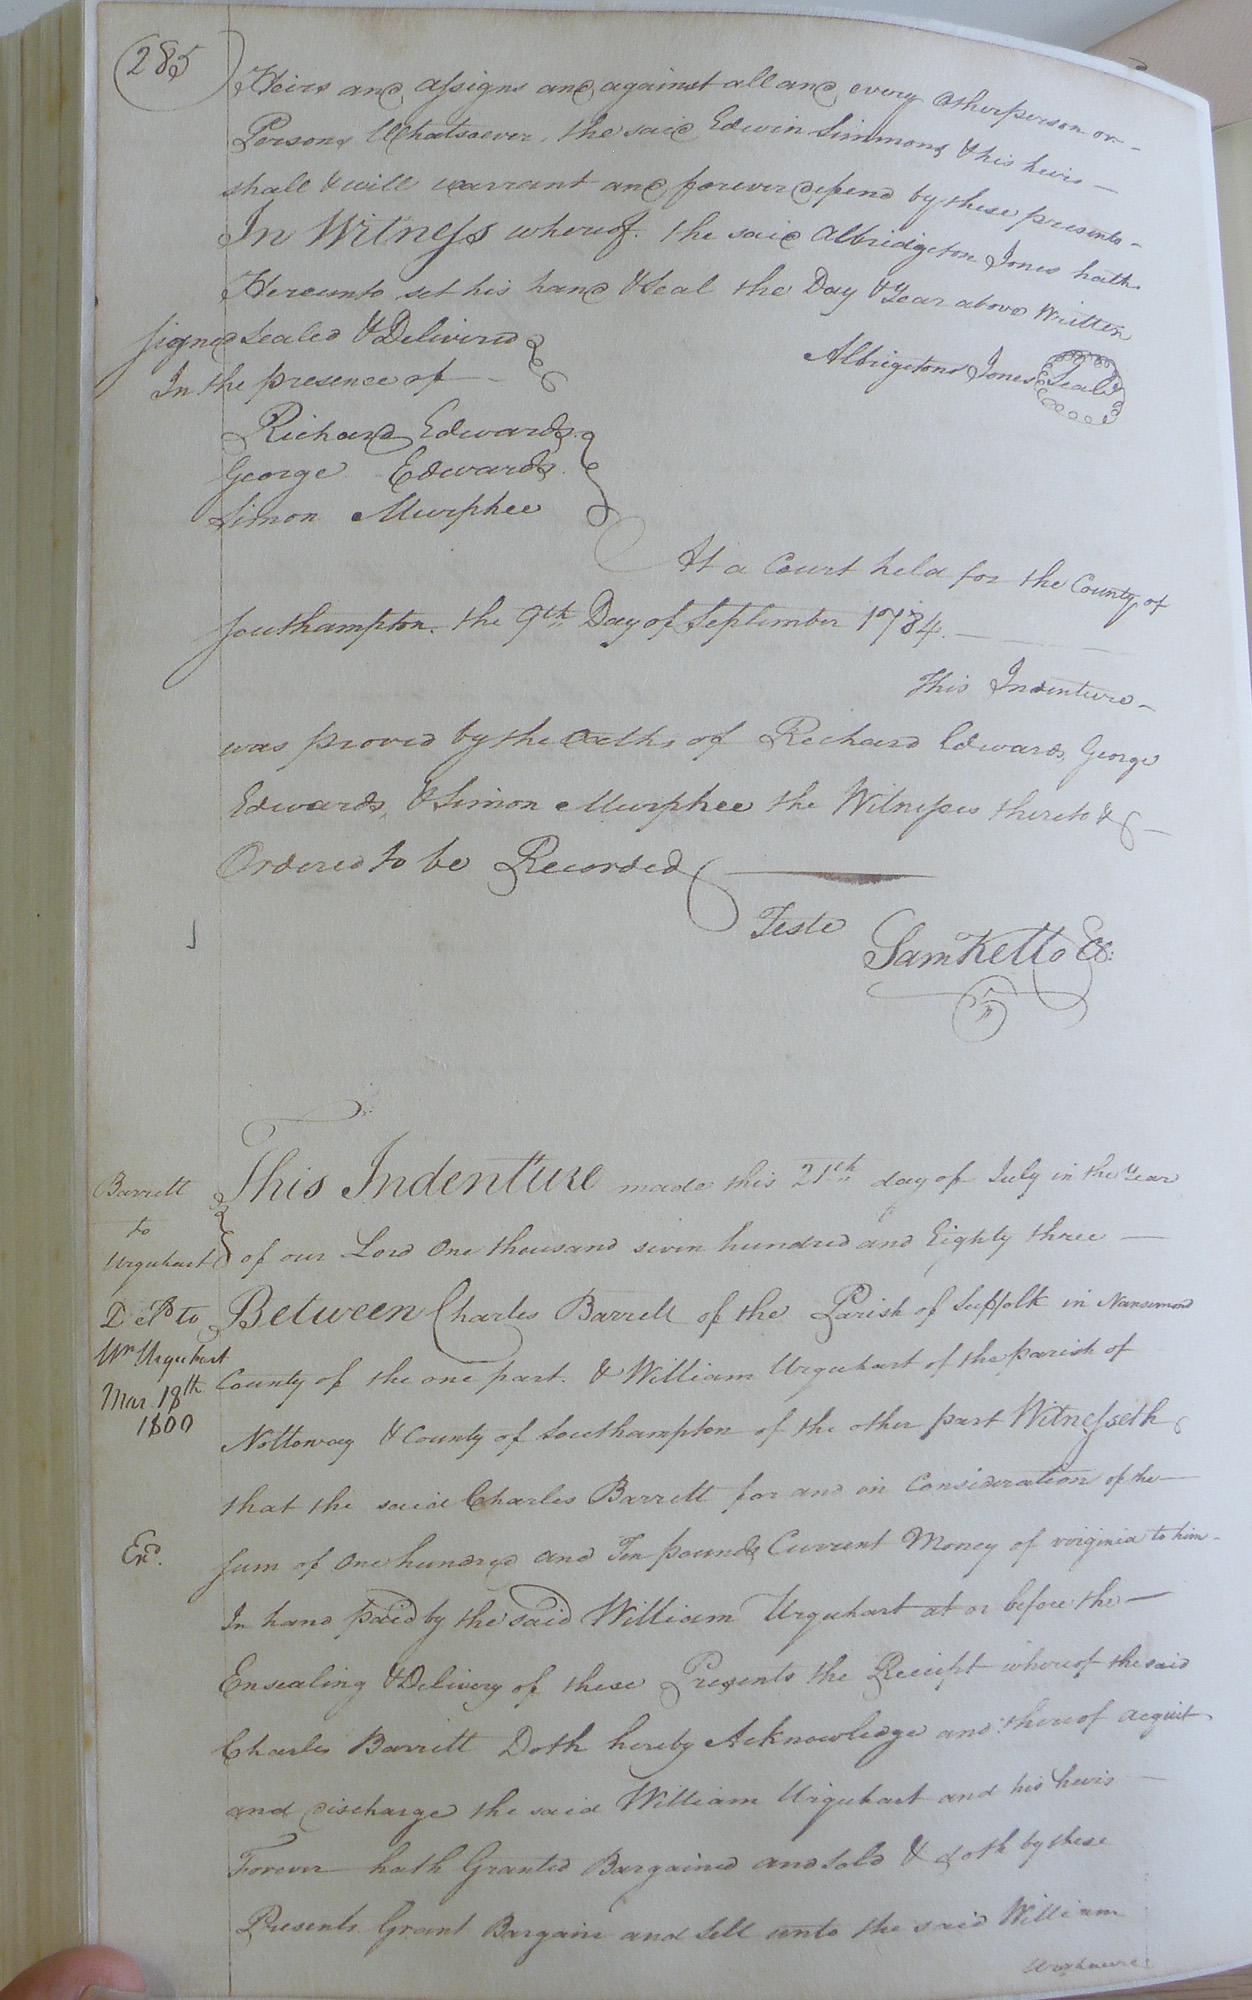 285
Heirs and assigns and against all and every other person or
Persons Whatsoever, the said Edwin Simmons & his heirs
shall & will warrant and forever defend by these presents
In Witness whereof the said Albridgeton Jones hath
Hereunto set his hand & Seal the Day & Year above Written
Signed Sealed & Delivered
In the presence of
Albrigeton Jones Seal
Richard Edwards
George Edwards
Simon Murphee
At a Court held for the County of
Southampton the 9th Day of September 1784.
This Indenture
was proved by the Oaths of Richard Edwards, George
Edwards, & Simon Murphee the Witnesses thereto &
Ordered to be Recorded
Teste
Sam Kello
Barrett
to
Urquhart
Dd to
Wm Urquhart
Mar. 18th
1800
Exd.
This Indenture made this 21th day of July in the Year
of our Lord One thousand seven hundred and Eighty three
Between Charles Barrett of the Parish of Suffolk in Nansemond
County of the one part. & William Urquhart of the parish of
Nottoway & County of Southampton of the other part Witnesseth
that the said Charles Barrett for and in Consideration of the
Sum of One hundred and Ten pounds Current Money of virginia to him
In hand paid by the said William Urquhart at or before the
Ensealing & Delivery of these Presents the Reciept whereof the said
Charles Barrett Doth hereby Acknowledge and thereof acquit
and discharge the said William Urquhart and his heirs
Forever hath Granted Bargained and Sold & doth by these
Presents Grant Bargain and Sell unto the said William